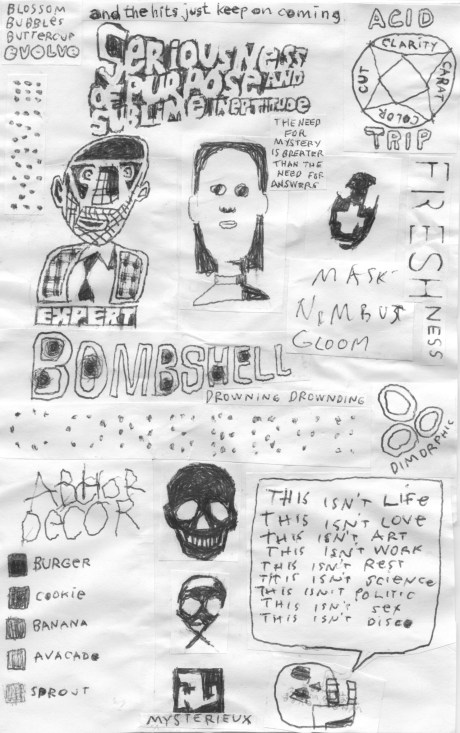 BLOSSOM
BUBBLES
BUTTERCUP
EVOLVE
and the hits just keep on coming.
SERIOUSNESS
OF PURPOSE AND
SUBLIME INEPTITUDE
ACID
CLARITY
CARAT
COLOR
CUT
TRIP
THE NEED
FOR
MYSTERY
IS GREATER
THAN THE
NEED FOR
ANSWERS
FRESHNESS
EXPERT
MASK
NIMBUS
GLOOM
BOMBSHELL
DROWNING DROWNDING
DIMORPHIC
ABHOR
DECOR
BURGER
COOKIE
BANANA
AVACADO
SPROUT
MYSTERIEUX
THIS ISN'T LIFE
THIS ISN'T LOVE
THIS ISN'T ART
THIS ISN'T WORK
THIS ISN'T REST
THIS ISN'T SCIENCE
THIS ISN'T POLITIC
THIS ISN'T SEX
THIS ISN'T DISCO